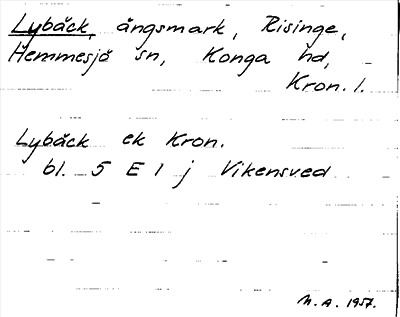 Lybäck, ängsmark, Risinge,
Hemmesjö sn, Konga hd,
Kron. l.
Lybäck ek Kron.
bl. 5 E 1 j Vikensved
M.A. 1957.